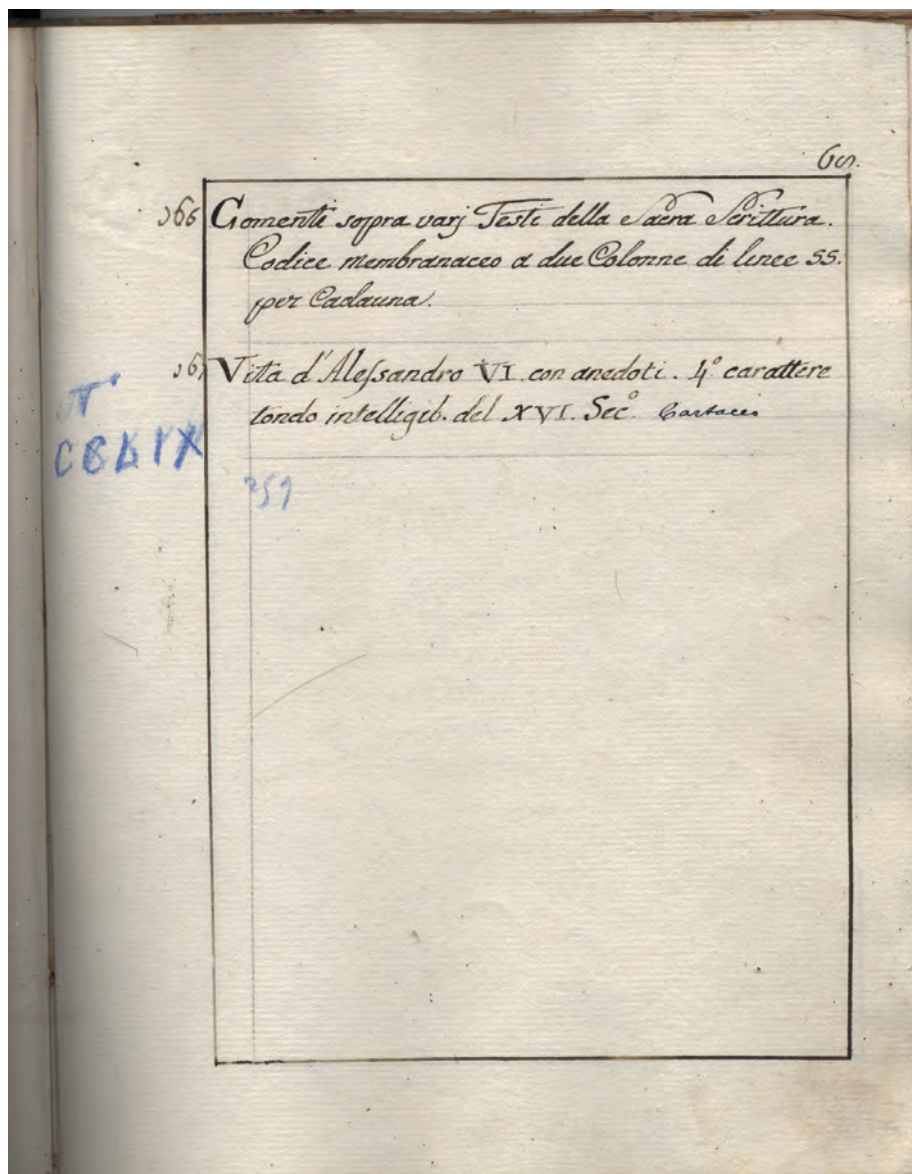 65.
366 Comenti sopra varj Testi della Sacra Scrittura.
Codice membranaceo a due Colonne di linee 55.
per Cadauna.
367 Vita d'Alessandro VI. con anedoti. 4° carattere
tondo intelligib. del XVI. Sec.° Cartaceo
259